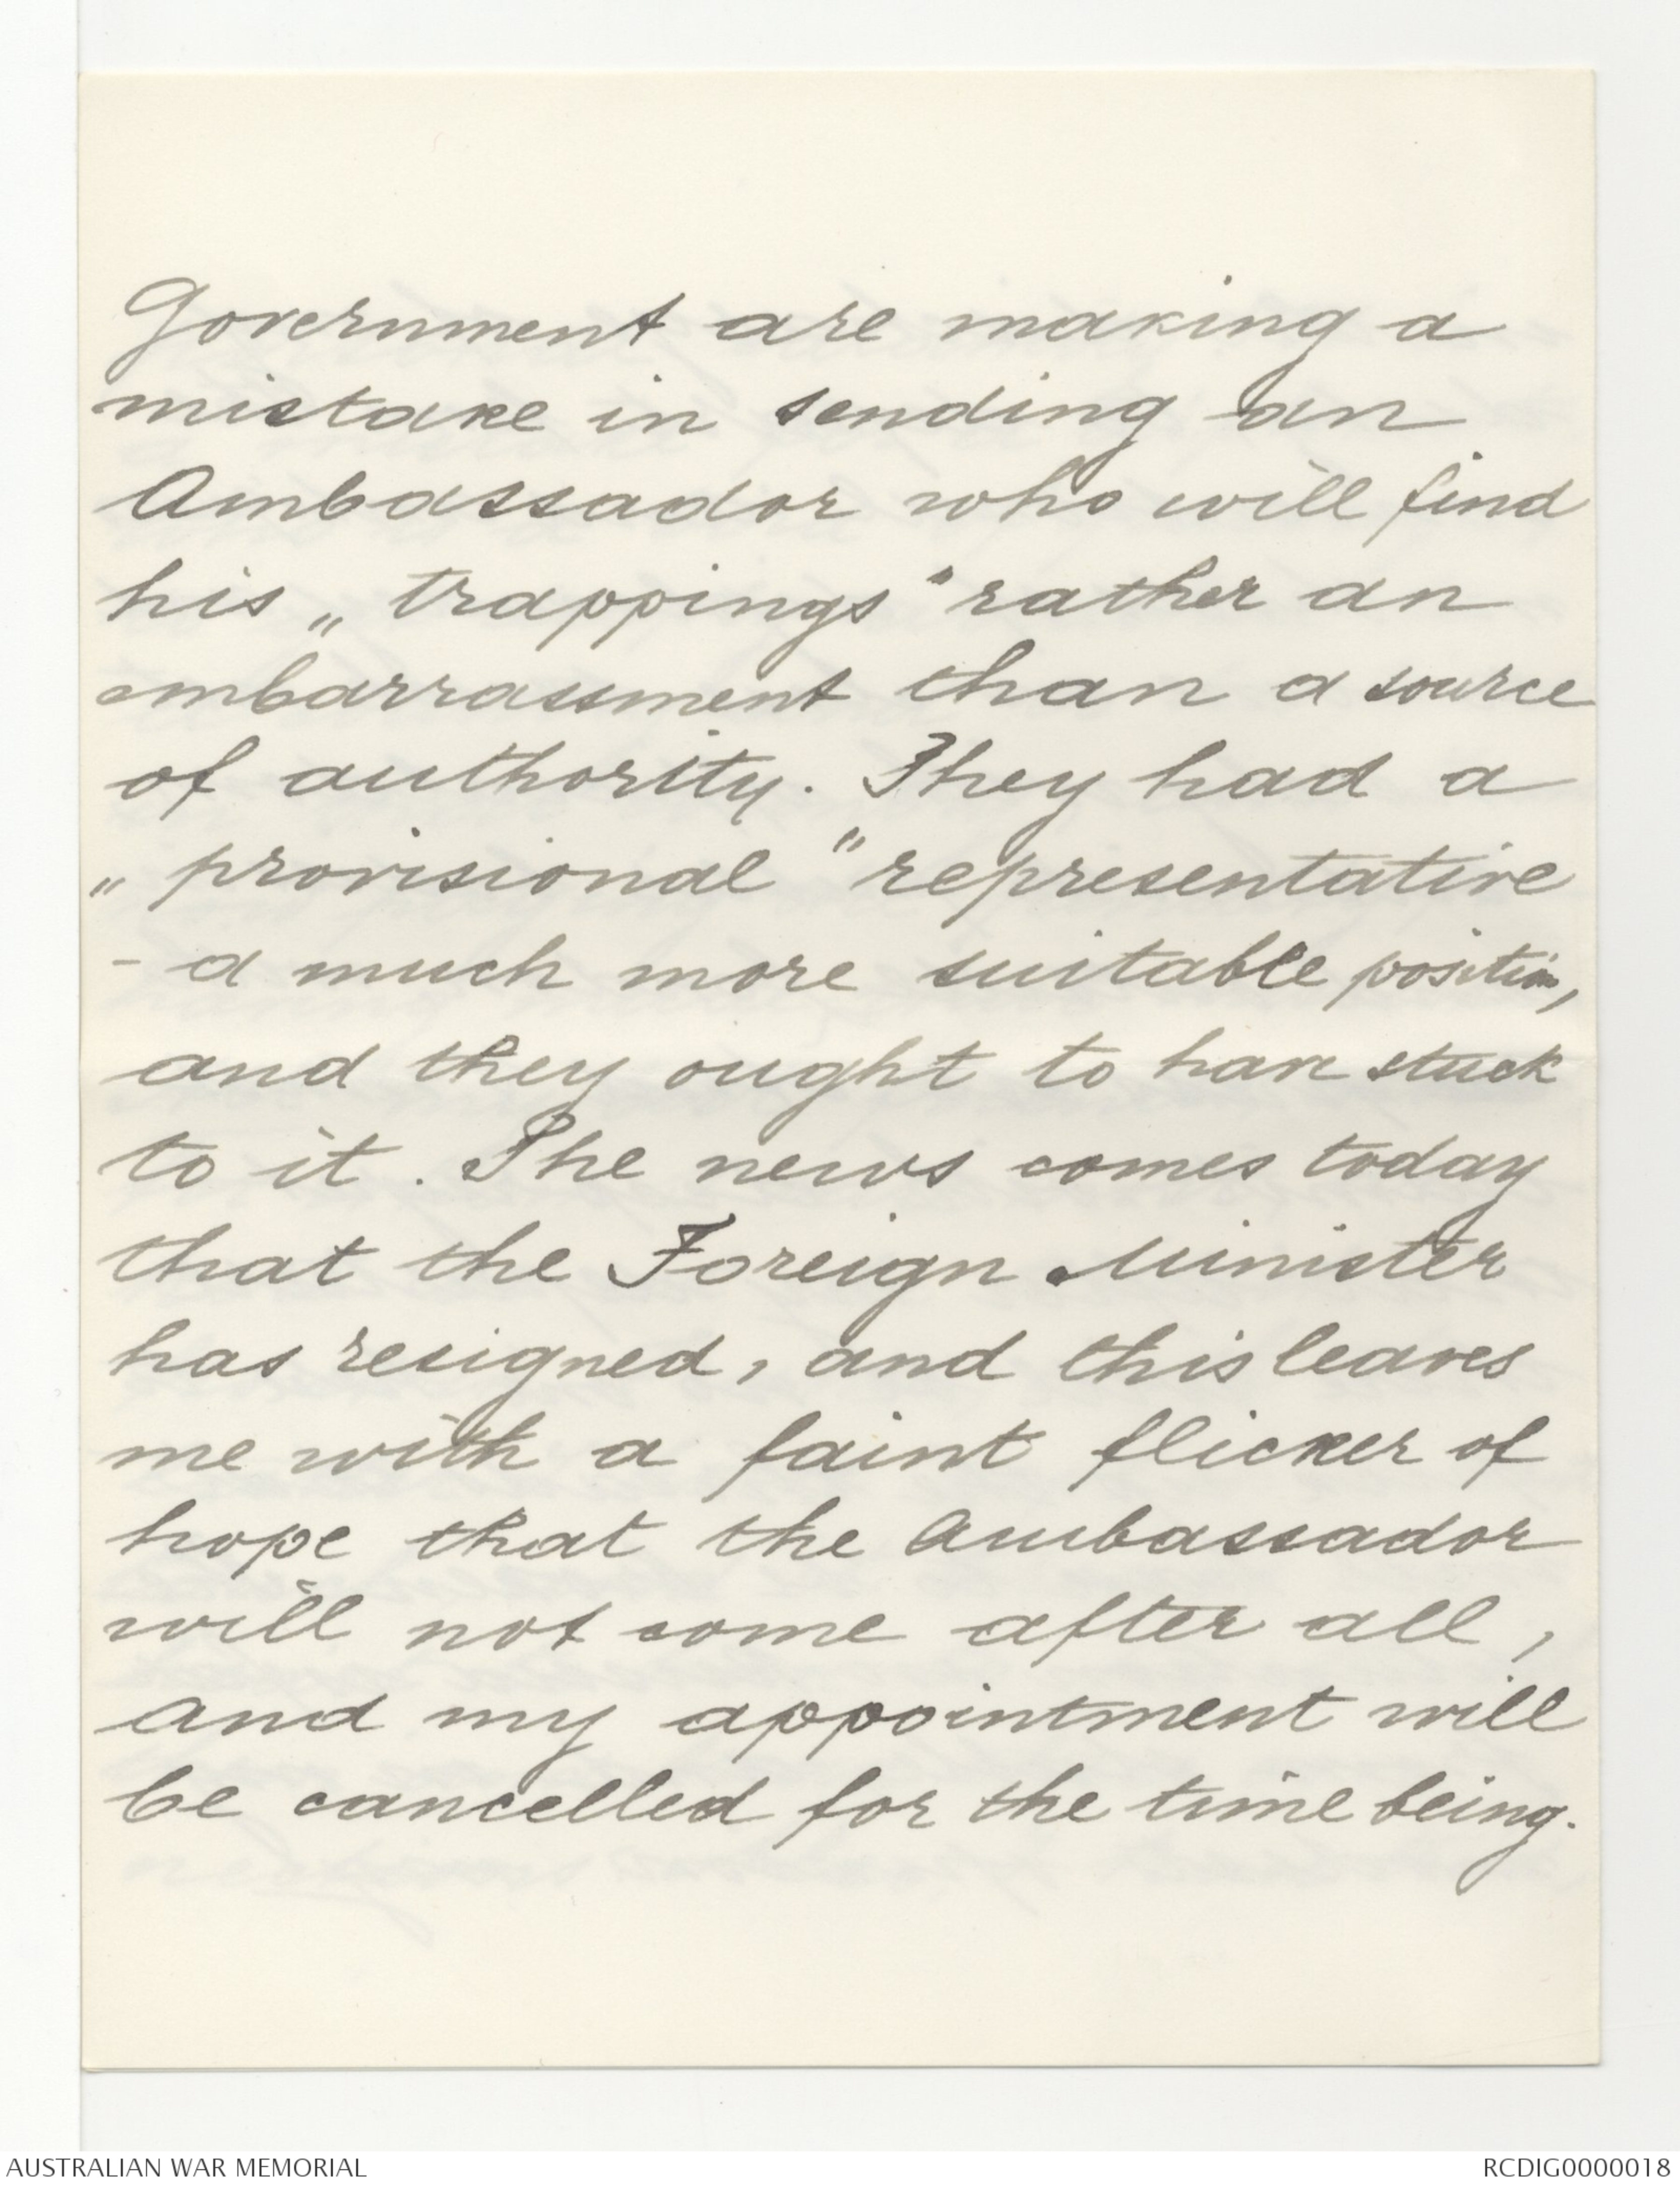 Government are making a
mistake in sending an
Ambassador who will find
his „trappings" rather an
embarrassment than a source
of authority. They had a
„provisional" representative
- a much more suitable position,
and they ought to have stuck
to it. The news comes today
that the Foreign Minister
has resigned, and this leaves
me with a faint flicker of
hope that the Ambassador
will not come after all,
and my appointment will
be cancelled for the time being.
AUSTRALIAN WAR MEMORIAL
RCDIG0000018